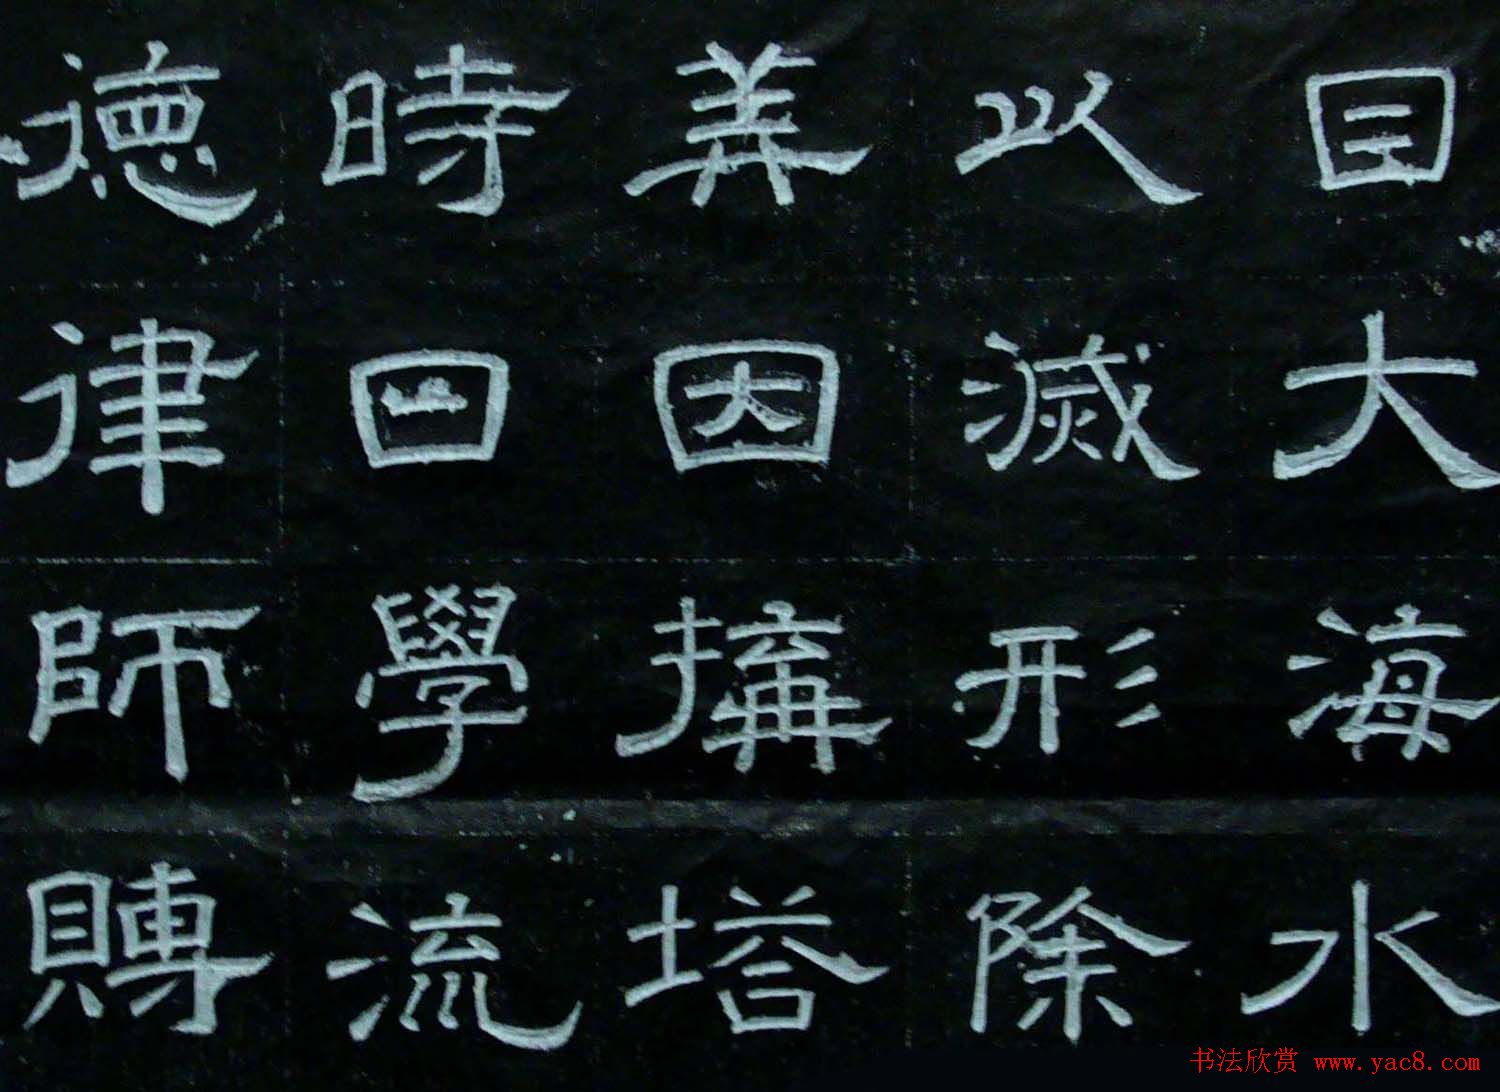 目大海水
以滅形除
因搆塔
時曰學流
德律師賻
书法欣赏 www.yac8.com